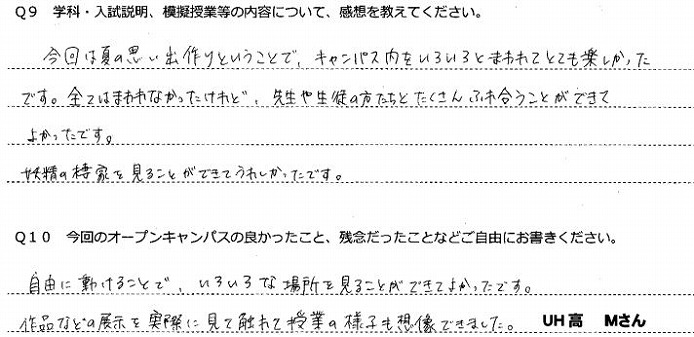 Q9 学科・入試説明、模擬授業等の内容について、感想を教えてください。
今回は夏の思い出作りということで、キャンパス内をいろいろとまわれてとても楽しかった
です。全てはまわれなかったけれど、先生や生徒の方たちとたくさんふれ合うことができて
よかったです。
妖精の棲家を見ることができてうれしかったです。
Q10 今回のオープンキャンパスの良かったこと、残念だったことなどご自由にお書きください。
自由に動けることで、いろいろな場所を見ることができてよかったです。
作品などの展示を実際に見て触れて授業の様子も想像できました。 UH高 Mさん